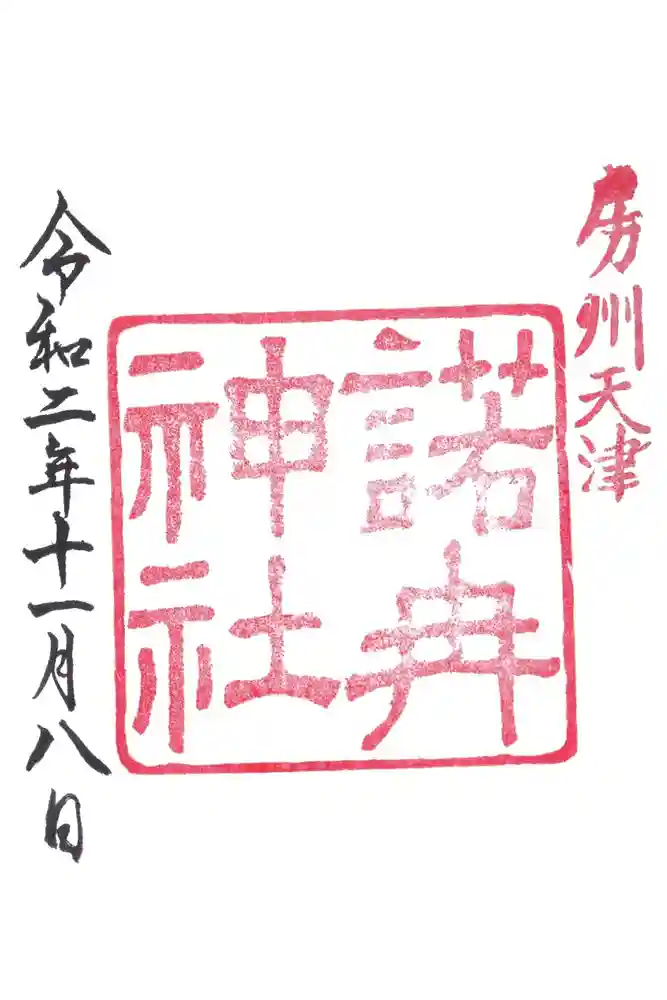 房州天津
諾冉
神社
令和二年十一月八日